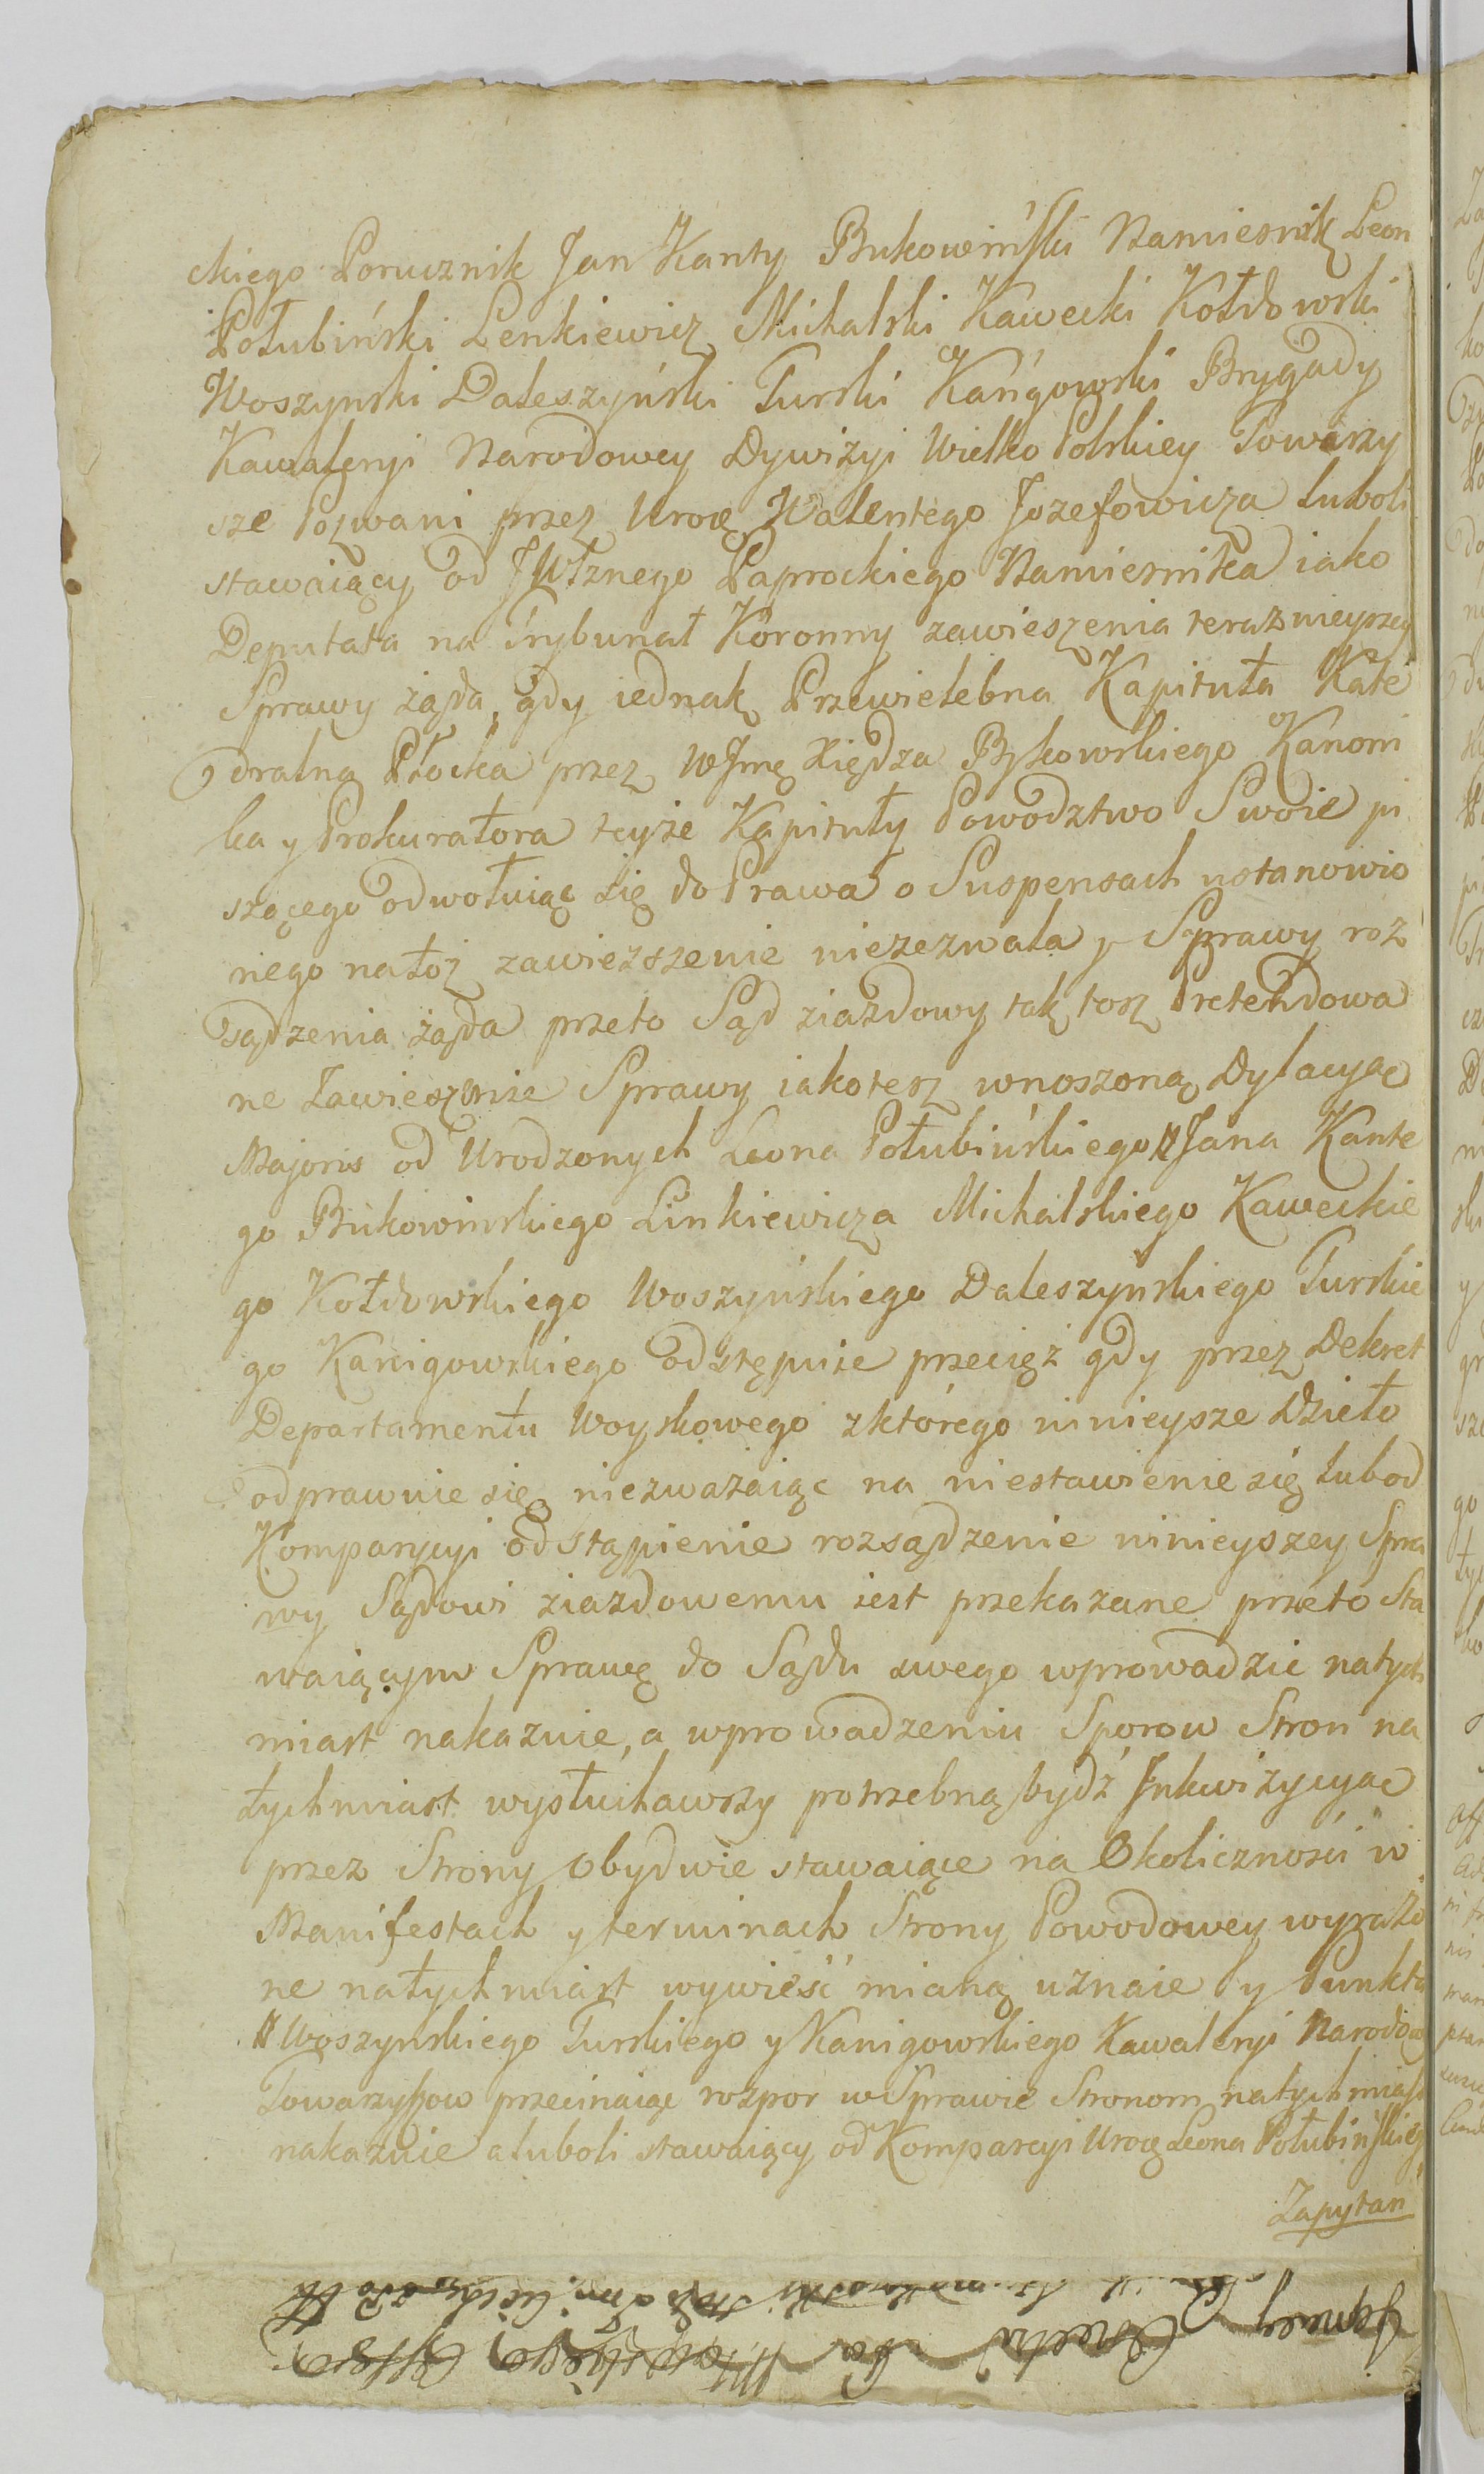 ckiego Porucznik Jan Kanty Bukowinski Namiesnik Leon
Połubiński Lenkiewicz Michalski Kawecki Kołdowski
Woszynski Daleszyński Turski Kanigowski Brygady
Kawaleryi Narodowey Dywizyi Wielko Polskiey Towarzy
sze Pozwani przez Uroę Walentego Jozefowicza luboli
stawaiący od JWIznego Paprockiego Namiesnika iako
Deputata na Trybunał Koronny zawieszenia teraznieyszey
Sprawy żąda, gdy iednak Przewielebna Kapituła Kate
dralna Płocka przez WJmę Xiędza Bykowskiego Kanoni
ka y Prokuratora teyże Kapituły Powodztwo Swoie pi
szącego odwołuiąc się do Prawa o Suspensach ustanowio
nego natoż zawieszszenie niezezwala y Sprawy roz
sądzenia żąda przeto Sąd ziazdowy tak tosz Pretendowa
ne Zawieszenie Sprawy iakotesz wnoszoną Dylacyąę
Majoris od Urodzonych Leona Połubińskiego Jana Kante
go Bukowinskiego Linkiewicza Michalskiego Kaweckie
go Kołdowskiego Woszyńskiego Daleszynskiego Turskie
go Kanigowskiego odstępuie przecięż gdy przez Dekret
Departamentu Woyskowego zktórego ninieysze Dzieło
odprawuie się niezważaiąc na niestawienie się lubod
Komparycyi odstąpienie rozsądzenie ninieyszey Spra
wy Sądowi ziazdowemu iest przekazane przeto Sta
waiącym Sprawę do Sądu swego wprowadzic natych
miast nakazuie, a wprowadzeniu Sporow Stron na
tychmiast wysłuchawszy potrzebną bydź Inkwizycyąę
przez Strony obydwie stawaiące na Okoliczności w
Manifestach y terminach Strony Powodowey wyrażo
ne natychmiast wywieść mianą uznaie y Punkta
Woszynskiego Turskiego y Kanigowskiego Kawaleryi Narodow
Towarzyszow przecinaiąc rozpor w Sprawie Stronom natychmiast
nakazuie aluboli stawaiący od Komparcyi Uroę Leona Połubińskieg
Zapytan